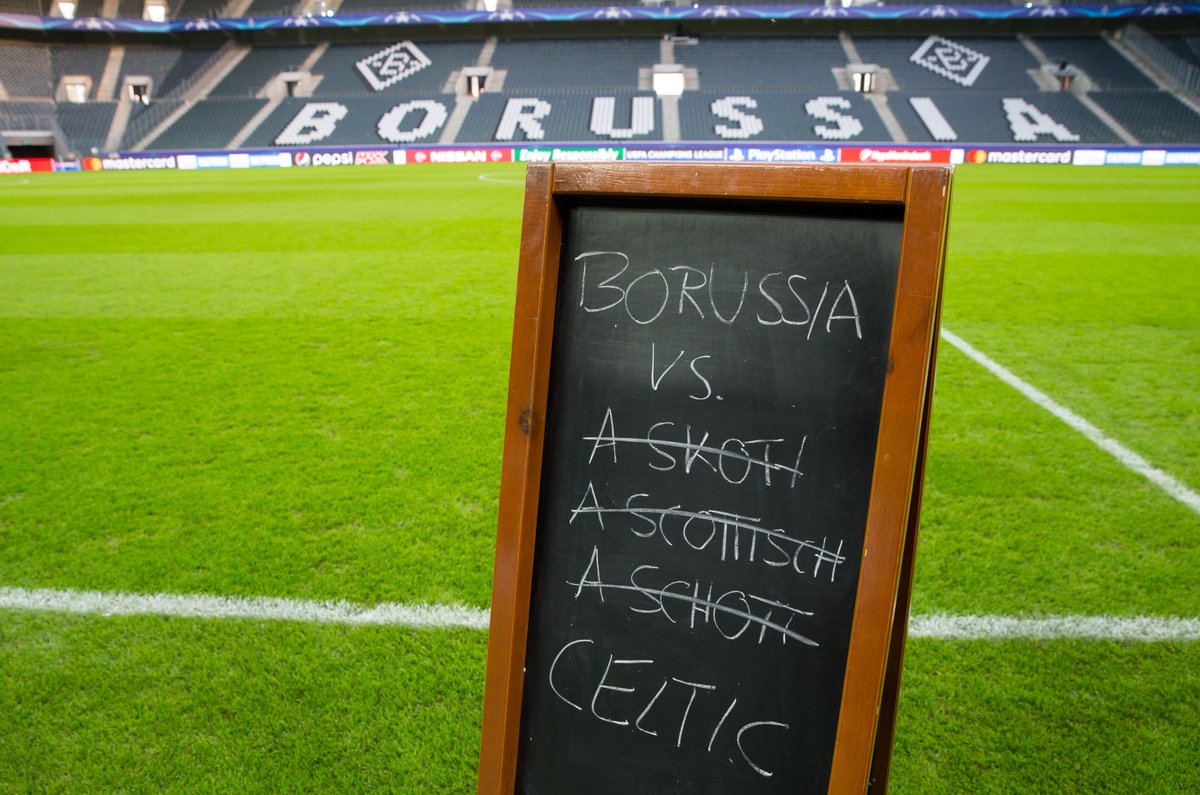 BORUSSIA
mastercard
pepsi MAX
NISSAN
Enjoy Responsibly
UEFA CHAMPIONS LEAGUE
PlayStation
mastercard
BORUSSIA
VS.
A SKOTI
A SCOTTISCH
A SCHOTT
CELTIC